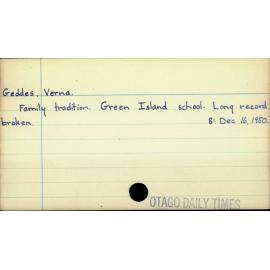 Geddes, Verna.
Family tradition. Green Island school. Long record
broken. 8: Dec 16, 1950.
OTAGO DAILY TIMES